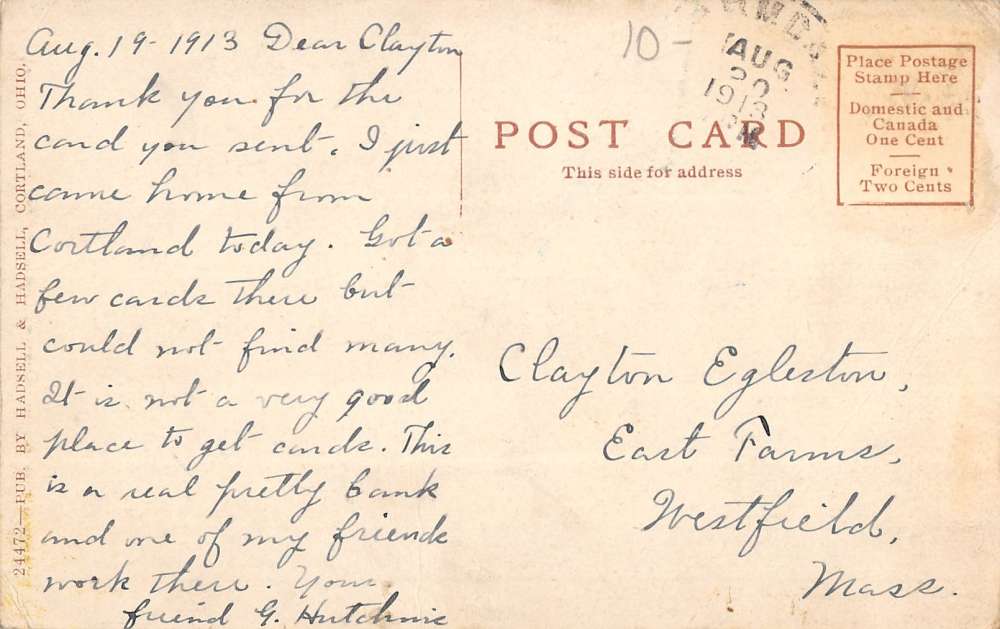 Aug. 19 - 1913 Dear Clayton
Thank you for the
card you sent. I just
came home from
Cortland today. Got a
few cards there but
could not find many.
It is not a very good
place to get cards. This
is a real pretty bank
and one of my friends
work there. Your
friend G. Hutchins
24472—PUB. BY HADSELL & HADSELL, CORTLAND, OHIO.
10-
AUG
20
1913
POST CARD
This side for address
Place Postage
Stamp Here
Domestic and
Canada
One Cent
Foreign
Two Cents
Clayton Egleston,
East Farms,
Westfield,
Mass.